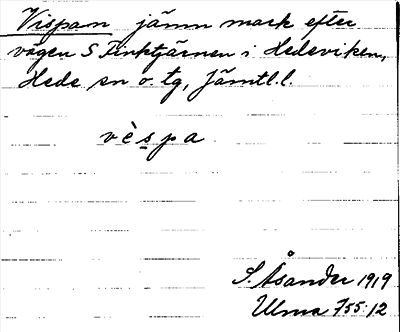 Vispam jämn mark efter
vägen S Finktjärnen i Hedeviken,
Hede sn o. tg, Jämtl. l.
vèspa
S. Åsander 1919
Ulma 755:12